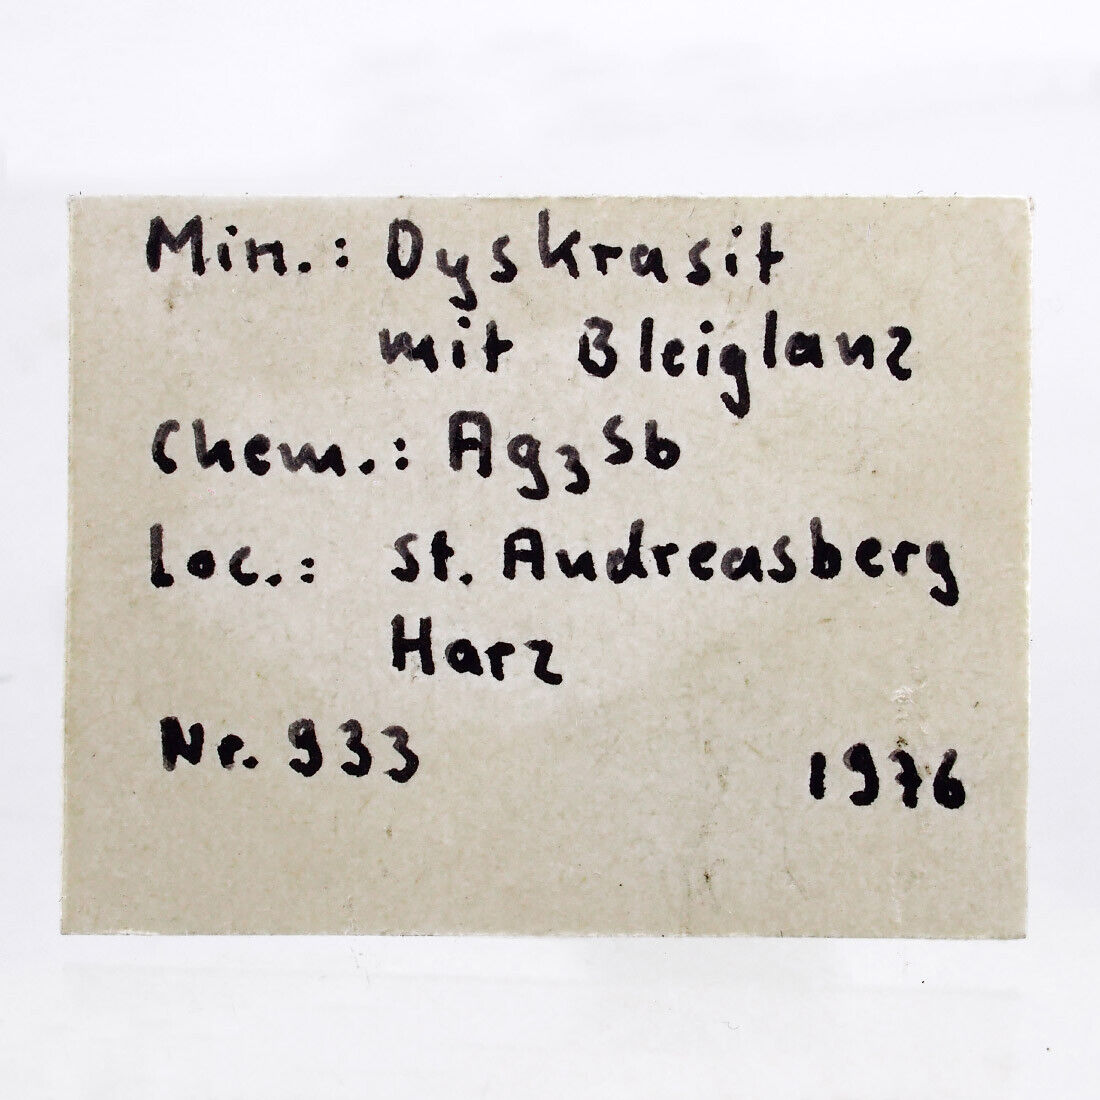 Min.: Dyskrasit
mit Bleiglanz
Chem.: Ag₃Sb
Loc.: St. Andreasberg
Harz
Nr. 933
1976